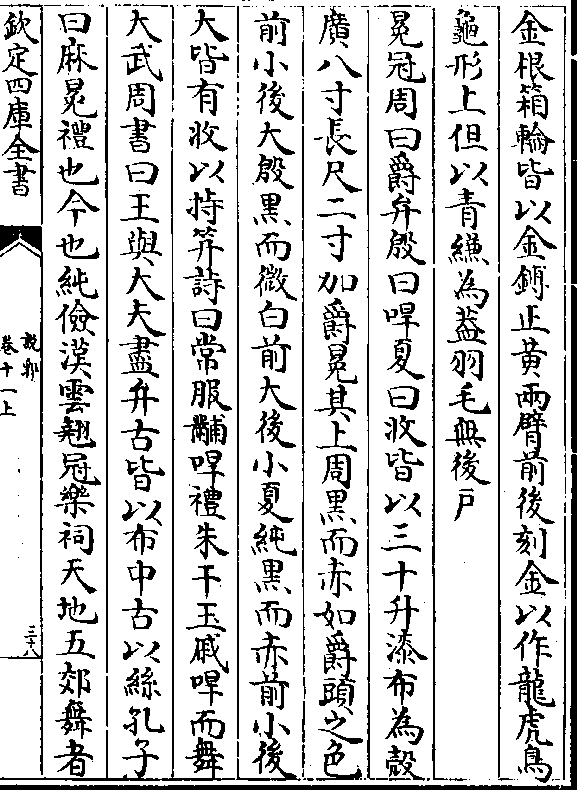 金根箱輪皆以金鎛正黄兩臂前後刻金以作龍虎鳥
龜形上但以青縑為葢羽毛無後戸
冕冠周曰爵弁殷曰哻夏曰收皆以三十升漆布為殻
廣八寸長尺二寸加爵冕其上周黒而赤如爵頭之色
前小後大殷黒而微白前大後小夏純黒而赤前小後
大皆有收以持笄詩曰常服黼哻禮朱干玉戚哻而舞
大武周書曰王與大夫盡弁古皆以布中古以絲孔子
曰麻冕禮也今也純儉漢雲翹冠樂祠天地五郊舞者
欽定四庫全書
說郛
卷十一上
三十八